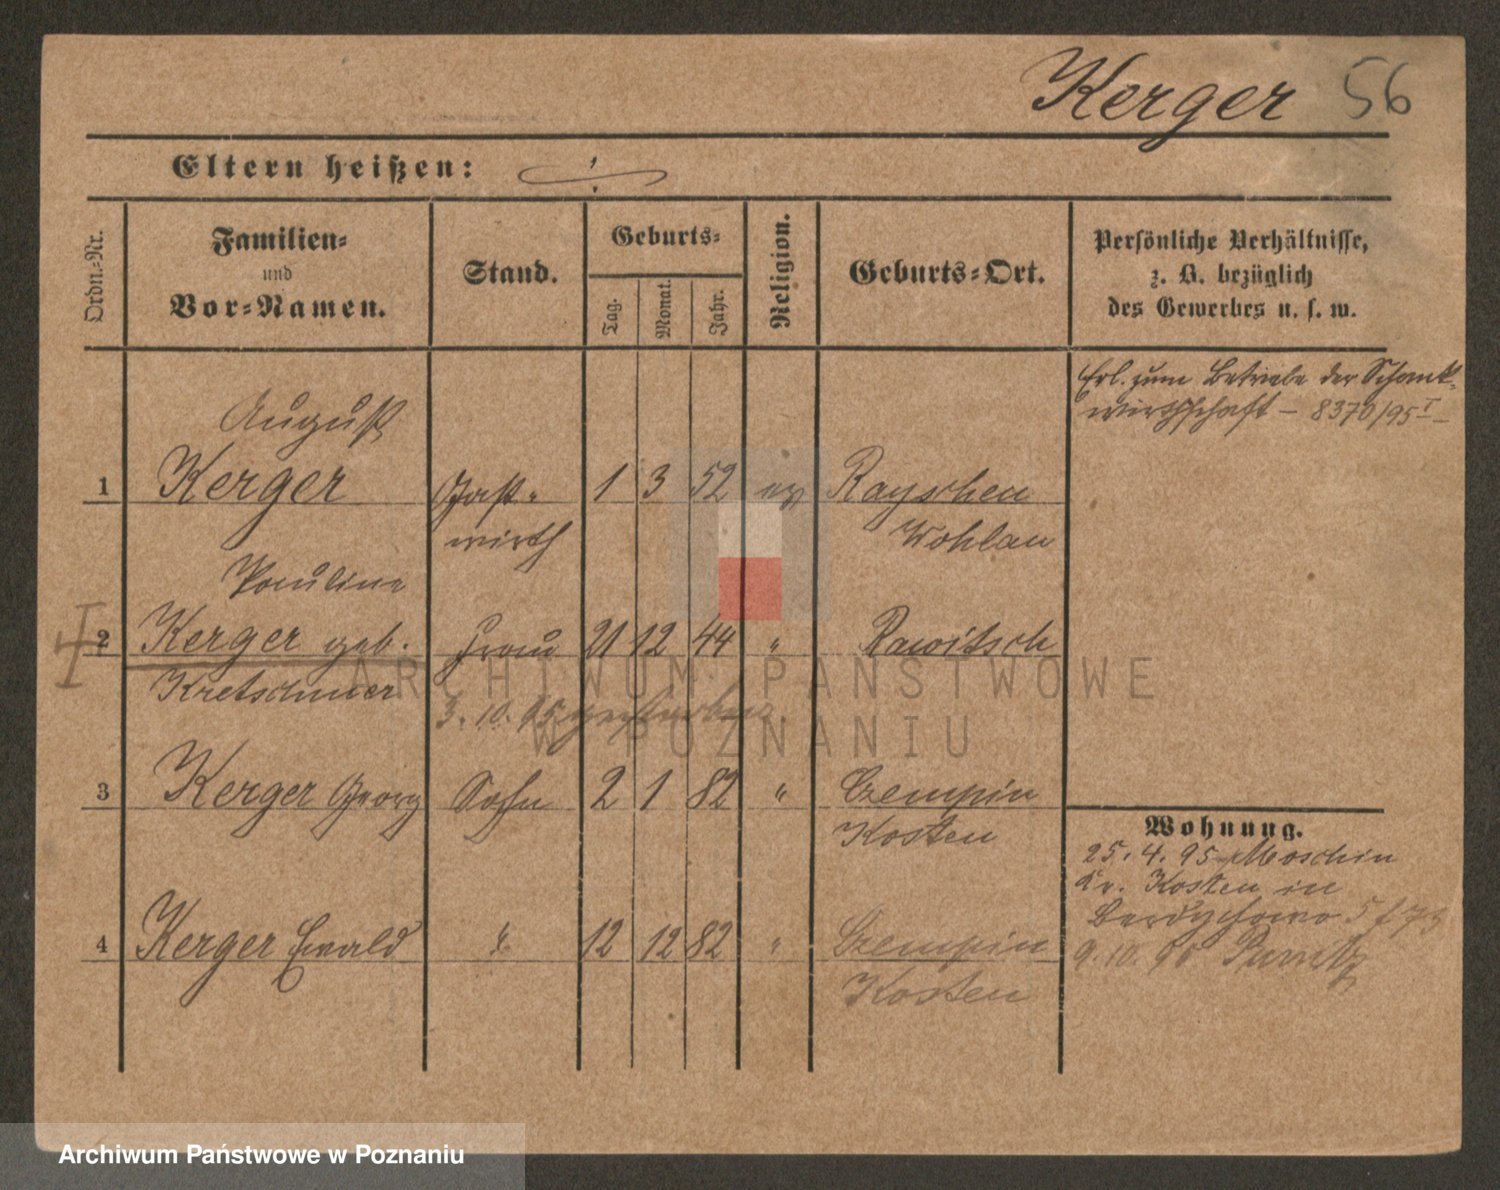 Kerger 56
Eltern heißen: ./.
Ordn.-Nr.
Familien-
und
Vor-Namen.
Stand.
Geburts-
Tag.
Monat.
Jahr.
Religion.
Geburts-Ort.
Persönliche Verhältnisse,
z. B. bezüglich
des Gewerbes u. s. w.
Erl. zum Betriebe der Schank-
wirthschaft – 8370/95 I
August
1 Kerger Gast- 1 3 52 ev Rayschen
wirth Wohlau
Pauline
2 Kerger geb. Frau 21 12 44 " Rawitsch
Kretschmer
3. 10. 95 gestorben
3 Kerger Georg Sohn 2 1 82 " Czempin
Kosten
4 Kerger Ewald 12 12 82 " Czempin
Kosten
Wohnung.
25. 4. 95 Moschin
Kr. Kosten in
Berdychowo
9. 10. 95
ARCHIWUM PAŃSTWOWE
W POZNANIU
Archiwum Państwowe w Poznaniu